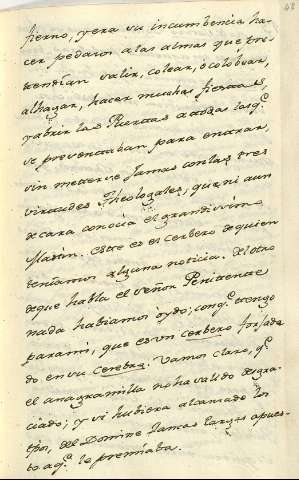 48
fierno, y era su incumbencia ha-
cer pedazos a las almas que pre-
tendian salir, colear,
alhagar, hacer muchas fiestas,
y abrir las Puertas a todas las q.^e
se presentaban para entrar,
sin meterse jamas con las tres
virtudes Theologales, que ni aun
de cara conocia el grandissimo
Mastin. Este es el cerbero de quien
teniamos alguna noticia. Del otro
de que habla el señor Penitente
nada habiamos oydo; con q.^e tengo
para mi, que es un cerbero forjado
en su Cerebro. Vamos claro, q.^e
el anagramilla no ha valido desgra-
ciado; y si hubiera alcanzado los
tpõs, del Domine lamas largas apues-
to a q.^e le premiaba.